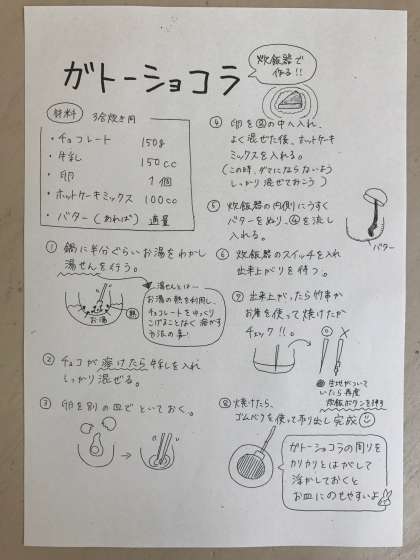 ガトーショコラ
炊飯器で
作る!!
材料
3合炊き用
・チョコレート 150g
・牛乳 150cc
・卵 1個
・ホットケーキミックス 100cc
・バター(あれば) 適量
① 鍋に半分ぐらいお湯をわかし
湯せんを行う。
湯せんとは…
お湯の熱を利用し、
チョコレートをゆっくり
こげることなく溶かす
方法の事!
お湯
熱
② チョコが溶けたら牛乳を入れ
しっかり混ぜる。
③ 卵を別の皿でといておく。
④ 卵を②の中へ入れ、
よく混ぜた後、ホットケーキ
ミックスを入れる。
(この時、ダマにならないよう
しっかり混ぜておこう)
⑤ 炊飯器の内側にうすく
バターをぬり、④を流し
入れる。
バター
⑥ 炊飯器のスイッチを入れ
出来上がりを待つ。
⑦ 出来上がったら竹串か
お箸を使って焼けたか
チェック!!。
生地がついて
いたら再度
炊飯ボタンを押す
⑧ 焼けたら、
ゴムベラを使って取り出し完成
ガトーショコラの周りを
カリカリとはがして
浮かしておくと
お皿にのせやすいよ